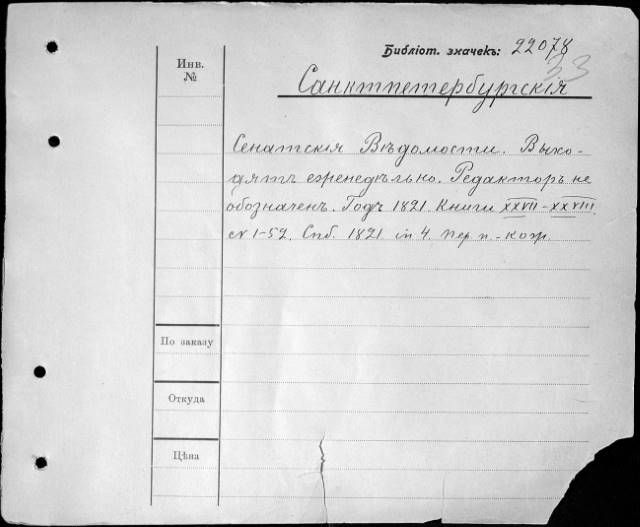 Библіот. значекъ: 22078
33
Инв.
№
Санктпетербургскія
Сенатскія Вѣдомости. Выхо-
дятъ еженедѣльно. Редакторъ не
обозначенъ. Годъ 1821. Книги XXVII-XXVIII.
№ 1-52. Спб. 1821 in 4. Пер. п.-кож.
По заказу
Откуда
Цѣна